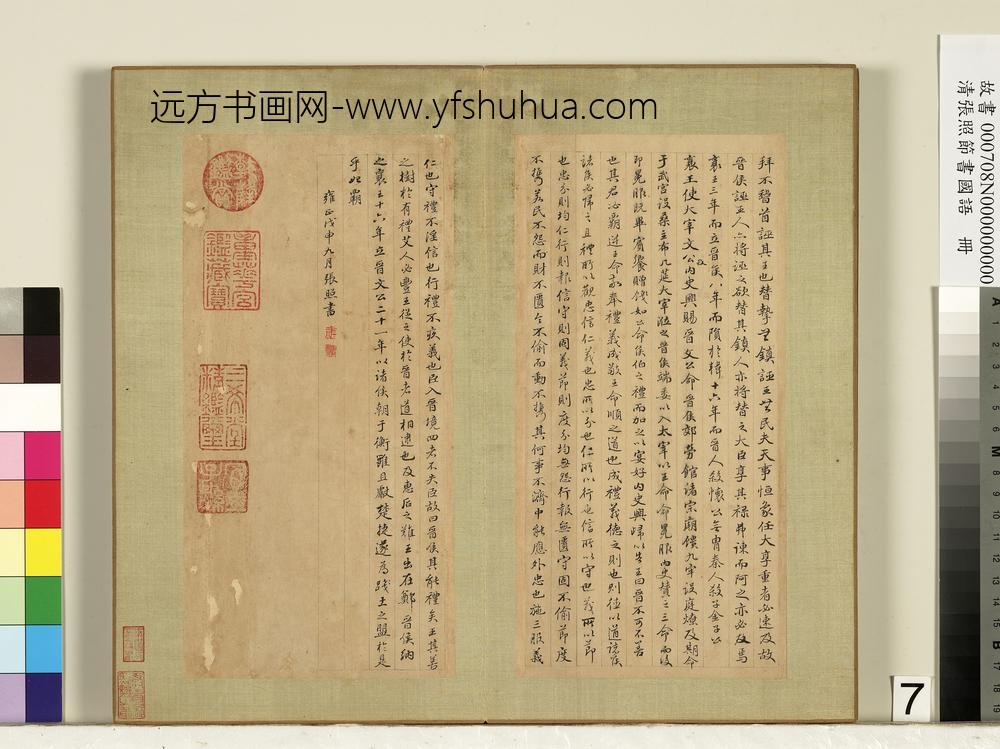 远方书画网-www.yfshuhua.com
拜不稽首誣其王也替摯無鎮誣王無民夫天事恒象任大享重者必速及故
晉侯誣王人亦將誣之欲替其鎮人亦將替之大臣享其祿弗諫而阿之亦必及焉
襄王三年而立晉侯八年而隕於韓十六年而晉人殺懷公無胄秦人殺子金子公
襄王使大宰文公及內史興賜晉文公命晉侯郊勞館諸宗廟饋九牢設庭燎及期命
于武宮設桑主布几筵大宰涖之晉侯端委以入太宰以王命命冕服內史贊之三命而後
即冕服既畢賓饗贈餞如公命侯伯之禮而加之以宴好內史興歸以告王曰晉不可不善
也其君必霸逆王命敬奉禮義成敬王命順之道也成禮義德之則也則德以道諸侯
諸侯必歸之且禮所以觀忠信仁義也忠所以分也仁所以行也信所以守也義所以節
也忠分則均仁行則報信守則固義節則度分均無怨行報無匱守固不偷節度
不攜若民不怨而財不匱令不偷而動不攜其何事不濟中能應外忠也施三服義
仁也守禮不淫信也行禮不疚義也臣入晉境四者不失臣故曰晉侯其能禮矣王其善
之樹於有禮艾人必豐王從之使於晉者道相逮也及惠后之難王出在鄭晉侯納
之襄王十六年立晉文公二十一年以諸侯朝于衡雍且獻楚捷遂為踐土之盟於是
乎始霸
雍正戊申九月張照書
故書 000708N000000000
清張照節書國語 冊
7